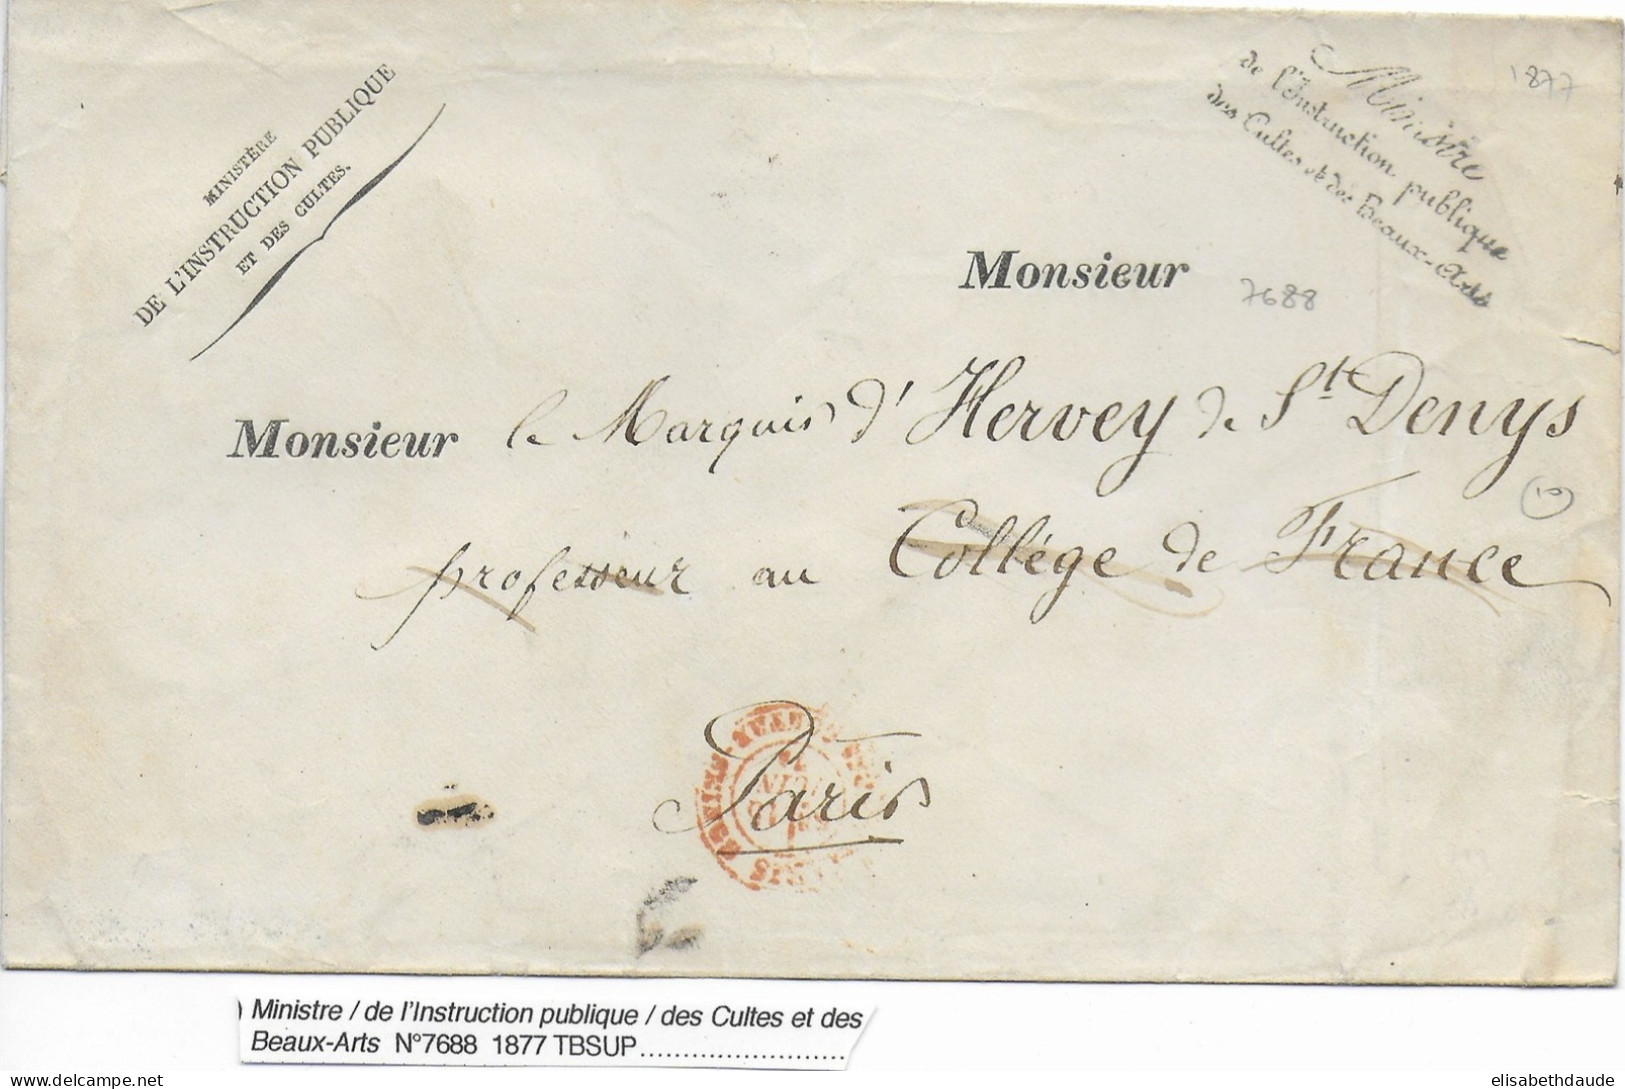 MINISTÈRE
DE L'INSTRUCTION PUBLIQUE
ET DES CULTES.
Ministre
de l'Instruction publique
des Cultes et des Beaux-Arts
1877
Monsieur
7688
Monsieur le Marquis d'Hervey de St Denys
(10)
professeur au Collége de France
Paris
) Ministre / de l'Instruction publique / des Cultes et des
Beaux-Arts N°7688 1877 TBSUP........................
elisabethdaude